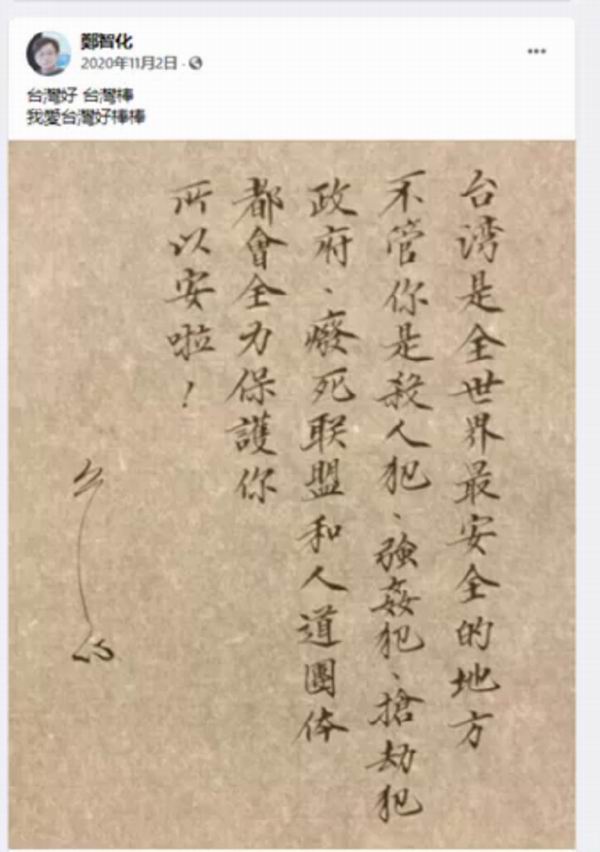 鄭智化
2020年11月2日
台灣好 台灣棒
我愛台灣好棒棒
台湾是全世界最安全的地方
不管你是殺人犯、強姦犯、搶劫犯
政府、癈死联盟和人道團体
都會全力保護你
所以安啦！